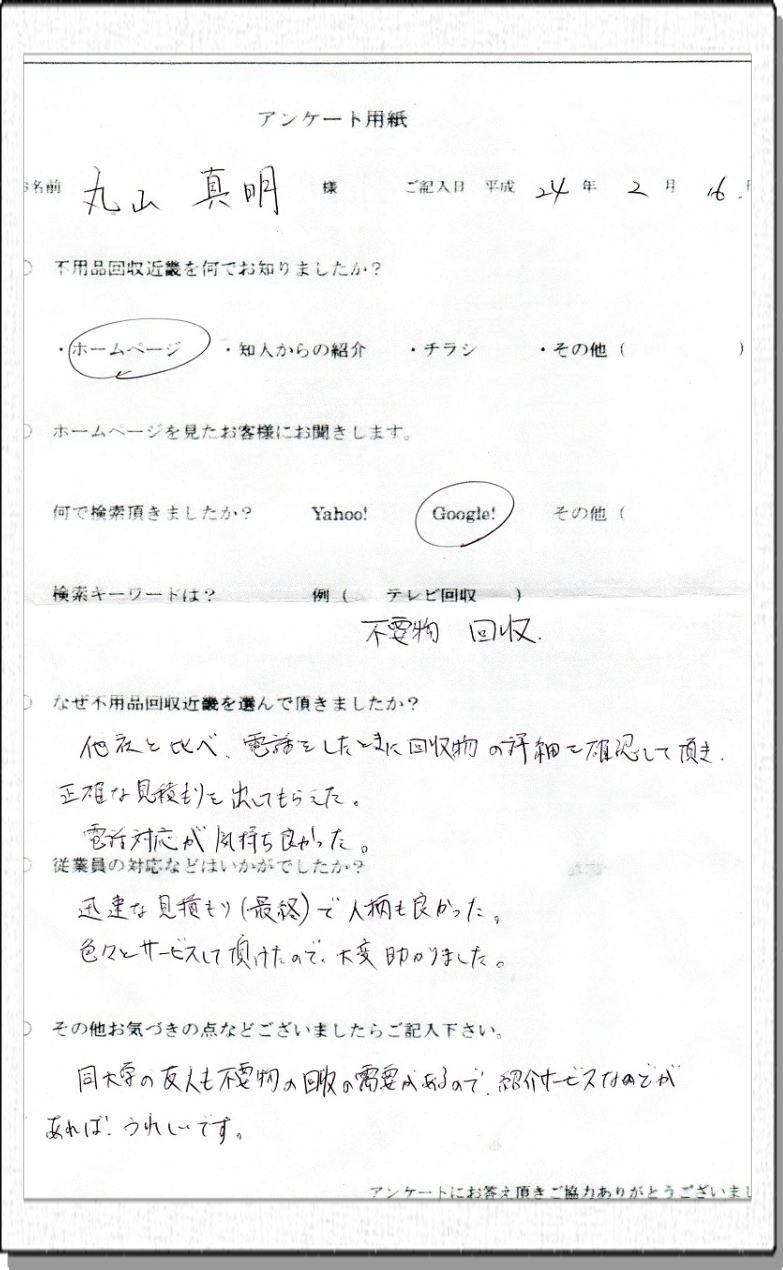 アンケート用紙
名前 丸山 真明 様 ご記入日 平成 24 年 2 月 16
不用品回収近畿を何でお知りましたか?
・ホームページ ・知人からの紹介 ・チラシ ・その他 ( )
ホームページを見たお客様にお聞きします。
何で検索頂きましたか? Yahoo! Google! その他 (
検索キーワードは? 例 ( テレビ回収 )
不要物 回収.
なぜ不用品回収近畿を選んで頂きましたか?
他社と比べ、電話をしたときに回収物の詳細を確認して頂き、
正確な見積もりを出してもらえた。
電話対応が気持ち良かった。
従業員の対応などはいかがでしたか?
迅速な見積もり(最終)で人柄も良かった。
色々とサービスして頂けたので、大変助かりました。
その他お気づきの点などございましたらご記入下さい。
同大学の友人も不要物の回収の需要があるので、紹介サービスなどが
あれば、うれしいです。
アンケートにお答え頂きご協力ありがとうございまし